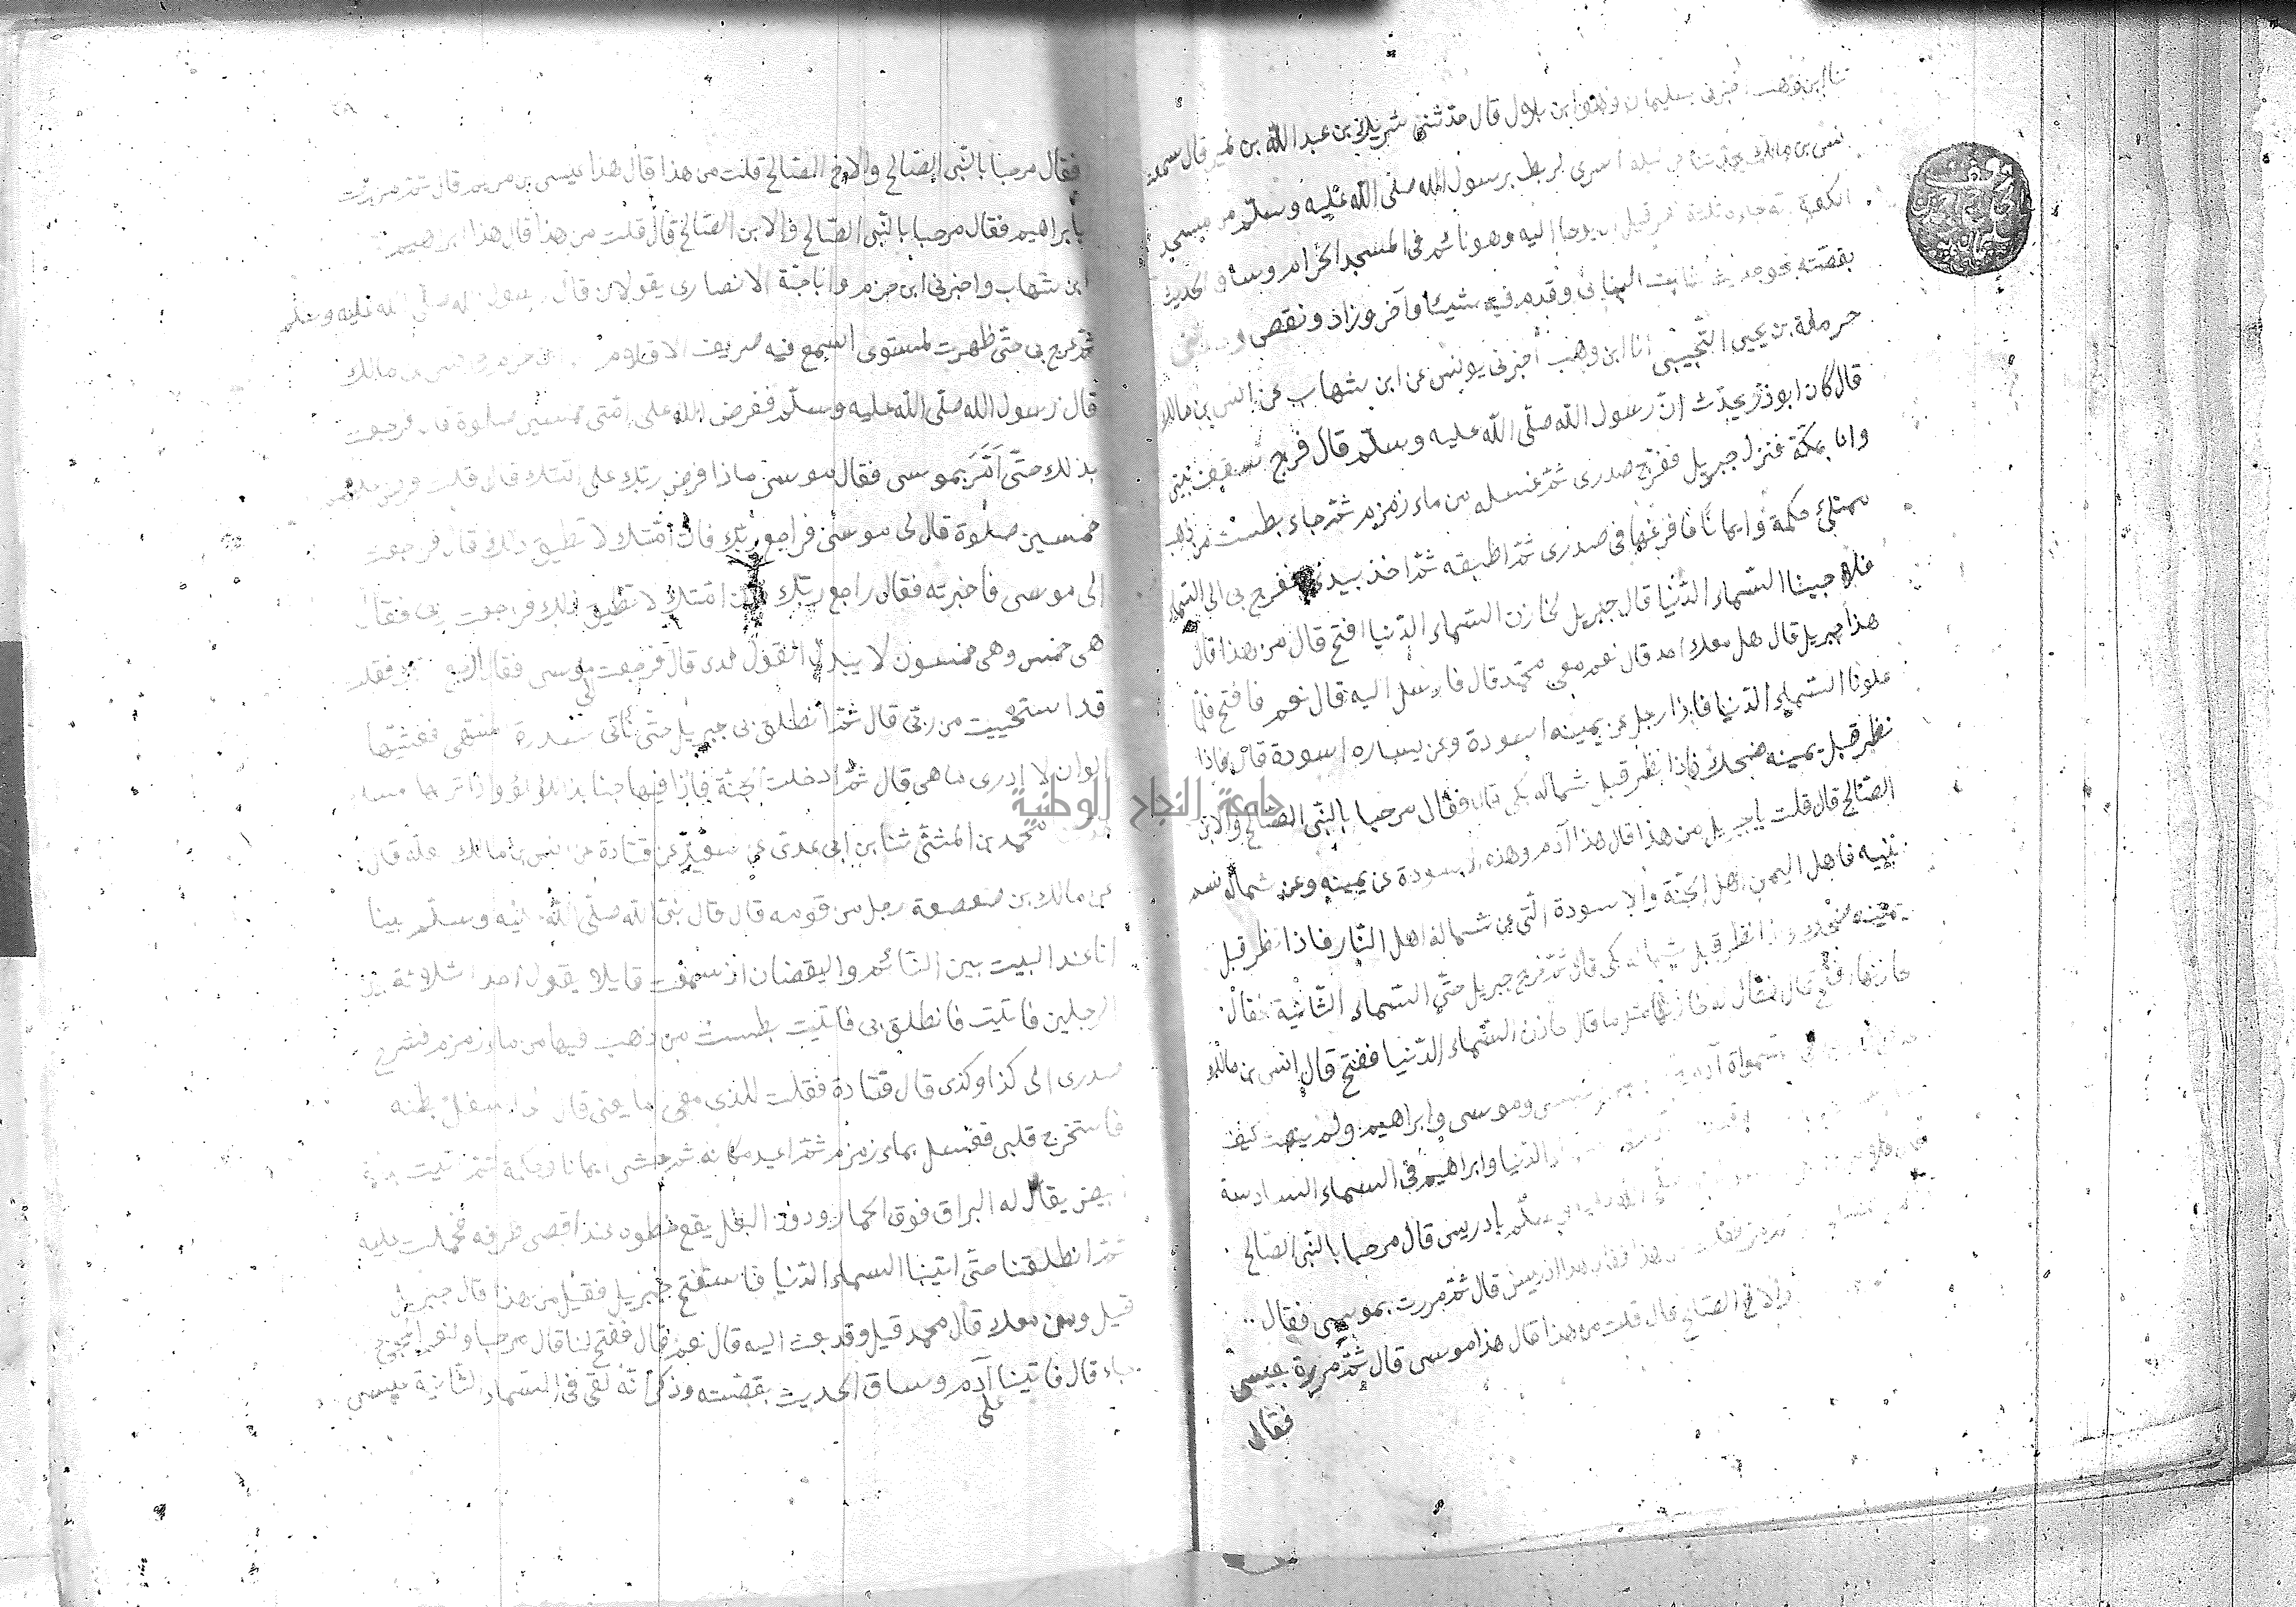 ثنا ابن وهب اخبرنى سليمان وهو ابن بلال قال حدثنى شريك بن عبد الله بن نمير قال سمعت
انس بن مالك يحدثنا عن ليلة اسرى برسول الله صلى الله عليه وسلم من مسجد
الكعبة انه جاءه ثلثة نفر قبل ان يوحا اليه وهو نائم فى المسجد الحرام وساق الحديث
بقصته نحو حديث ثابت البنانى وقدم فيه شيئا وآخر وزاد ونقص
حرملة بن يحيى التجيبى انا ابن وهب أخبرنى يونس عن ابن شهاب عن انس بن مالك
قال كان ابو ذر يحدث ان رسول الله صلى الله عليه وسلم قال فرج سقف بيتى
وانا بمكة فنزل جبريل ففرج صدرى ثم غسله من ماء زمزم ثم جاء بطست من ذهب
ممتلئ حكمة وايمانا فافرغها فى صدرى ثم اطبقه ثم اخذ بيدى فعرج بى الى السماء
فلما جينا السماء الدنيا قال جبريل لخازن السماء الدنيا افتح قال من هذا قال
هذا جبريل قال هل معك احد قال نعم معى محمد قال فارسل اليه قال نعم فافتح فلما
علونا السماء الدنيا فاذا رجل عن يمينه اسودة وعن يساره اسودة قال فاذا
نظر قبل يمينه ضحك فاذا نظر قبل شماله بكى قال فقال مرحبا بالنبى الصالح والابن
الصالح قال قلت يا جبريل من هذا قال هذا آدم وهذه الاسودة عن يمينه وعن شماله نسم
بنيه فاهل اليمين اهل الجنة والاسودة التى عن شماله اهل النار فاذا نظر قبل
يمينه ضحك واذا نظر قبل شماله بكى قال ثم عرج جبريل حتى السماء الثانية فقال
خازنها افتح قال فقال له خازنها مثل ما قال خازن السماء الدنيا ففتح قال انس بن مالك
السمواة آدم وعيسى وموسى وابراهيم ولم يثبت كيف
الدنيا وابراهيم فى السماء السادسة
قال فلما صلى الله عليه وسلم بادريس قال مرحبا بالنبى الصالح
فقلت من هذا فقال هذا ادريس قال ثم مررت بموسى فقال
والاخ الصالح قال قلت من هذا قال هذا موسى قال ثم مررة بعيسى
فقال
٢٨
فقال مرحبا بالنبى الصالح والاخ الصالح قلت من هذا قال هذا عيسى بن مريم قال ثم مررت
بابراهيم فقال مرحبا بالنبى الصالح والابن الصالح قال قلت من هذا قال هذا ابراهيم
ابن شهاب واخبرنى ابن حزم وابا حبة الانصارى يقولان قال رسول الله صلى الله عليه وسلم
ثم عرج بى حتى ظهرت لمستوى اسمع فيه صريف الاقلام ابن حزم وانس بن مالك
قال رسول الله صلى الله عليه وسلم ففرض الله على امتى خمسين صلوة قال فرجعت
بذلك حتى أمر بموسى فقال موسى ماذا فرض ربك على امتك قال قلت فرض عليهم
خمسين صلوة قال لى موسى فراجع ربك فان أمتك لا تطيق ذلك قال فرجعت
الى موسى فاخبرته فقال راجع ربك فان امتك لا تطيق ذلك فراجعت ربى فقال
هى خمس وهى خمسون لا يبدل القول لدى قال فرجعت الى موسى فقال راجع ربك فقلت
قد استحييت من ربى قال ثم انطلق بى جبريل حتى نأتى سدرة المنتهى فغشيها
الوان لا ادرى ما هى قال ثم ادخلت الجنة فاذا فيها جنابذ اللؤلؤ واذا ترابها مسك
محمد بن المثنى ثنا ابن ابى عدى عن سعيد عن قتادة عن انس بن مالك لعله قال
عن مالك بن صعصعة رجل من قومه قال قال نبى الله صلى الله عليه وسلم بينا
انا عند البيت بين النائم واليقضان اذ سمعت قايلا يقول احد الثلاثة بين
الرجلين فاتيت فانطلق بى فاتيت بطست من ذهب فيها من ماء زمزم فشرح
صدرى الى كذا وكذى قال قتادة فقلت للذى معى ما يعنى قال الى اسفل بطنه
فاستخرج قلبى فغسل بماء زمزم ثم اعيد مكانه ثم حشى ايمانا وحكمة ثم اتيت بدابة
ابيض يقال له البراق فوق الحمار ودون البغل يقع خطوه عند اقصى طرفه فحملت عليه
ثم انطلقنا حتى اتينا السماء الدنيا فاستفتح جبريل فقيل من هذا قال جبريل
قيل ومن معك قال محمد قيل وقد بعث اليه قال نعم قال ففتح لنا قال مرحبا ولنعم المجيء
جاء قال فاتينا على آدم وساق الحديث بقصته وذكر انه لقى فى السماء الثانية عيسى
جامعة النجاح الوطنية